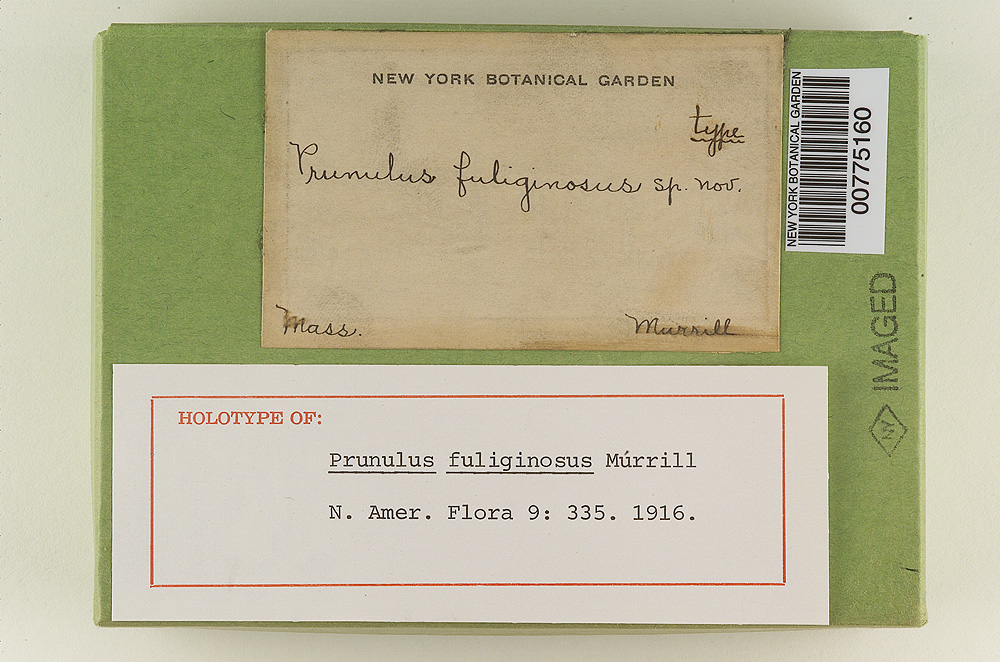 NEW YORK BOTANICAL GARDEN
type
Prunulus fuliginosus sp. nov.
Mass.
Murrill
NEW YORK BOTANICAL GARDEN
00775160
IMAGED
NY
HOLOTYPE OF:
Prunulus fuliginosus Múrrill
N. Amer. Flora 9: 335. 1916.